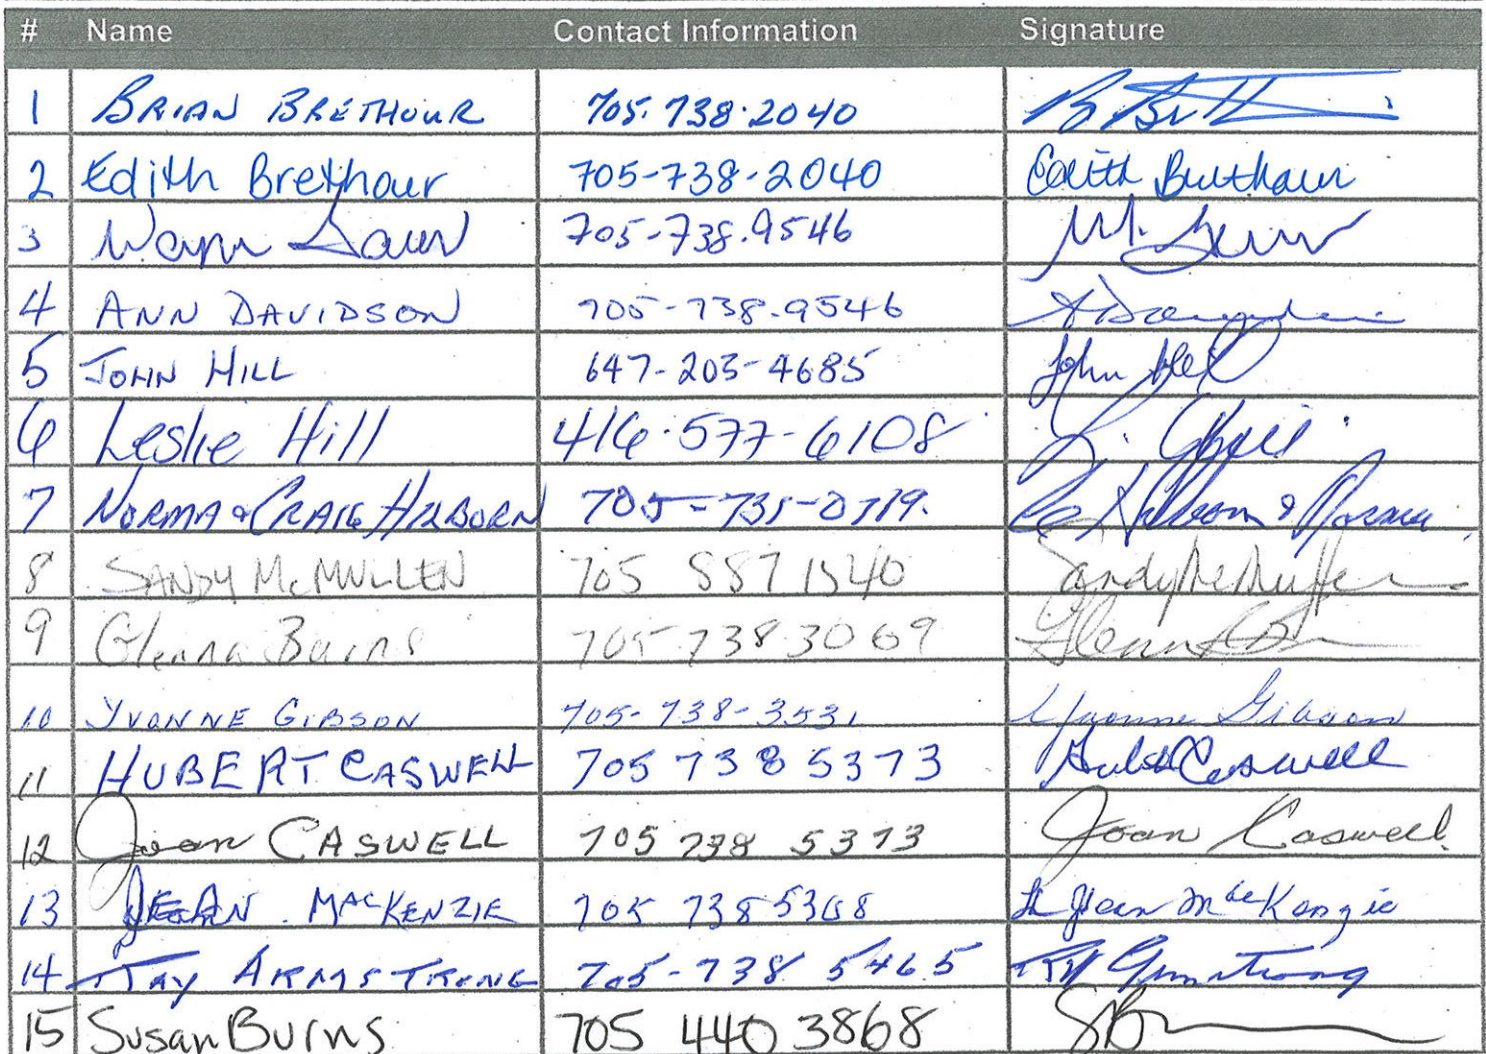 # Name Contact Information Signature
1 BRIAN BRETHOUR 705.738.2040
2 Edith Brethour 705-738-2040 Edith Brethour
3 705-738.9546
4 ANN DAVIDSON 705-738.9546
5 JOHN HILL 647-203-4685 John Hill
6 Leslie Hill 416.577-6108
7 NORMA & CRAIG HILBORN
8 SANDY McMULLEN 705 887 1540 Sandy McMullen
9 Glenna Burns 705 738 3069
10 YVONNE GIBSON 705-738-3531 Yvonne Gibson
11 HUBERT CASWELL 705 738 5373 Hubert Caswell
12 Joan CASWELL 705 738 5373 Joan Caswell
13 JEAN MACKENZIE 705 738 5368 Jean MacKenzie
14 RAY ARMSTRONG 705-738 5465 Armstrong
15 Susan Burns 705 440 3868